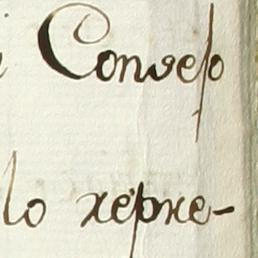 Conseso
lo repre-